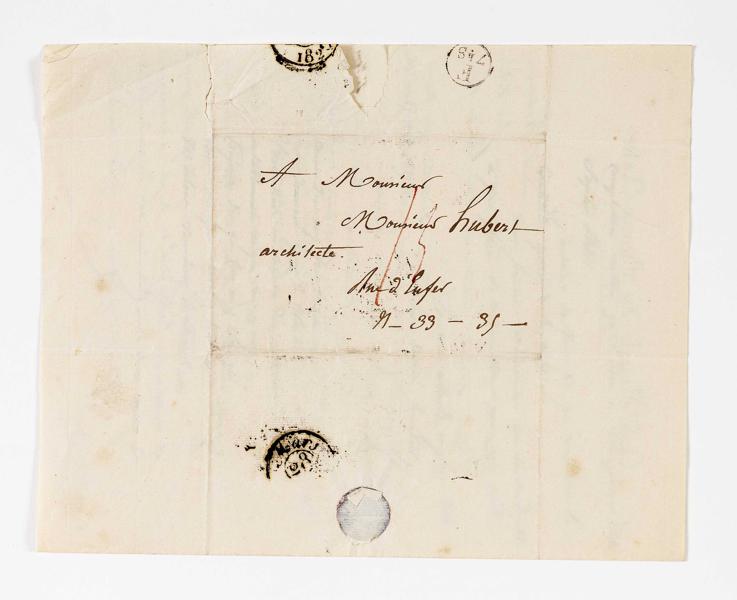 182
A Monsieur
Monsieur hubert
architecte.
Rue d'Enfer
N – 33 – 35 –
Mars
28